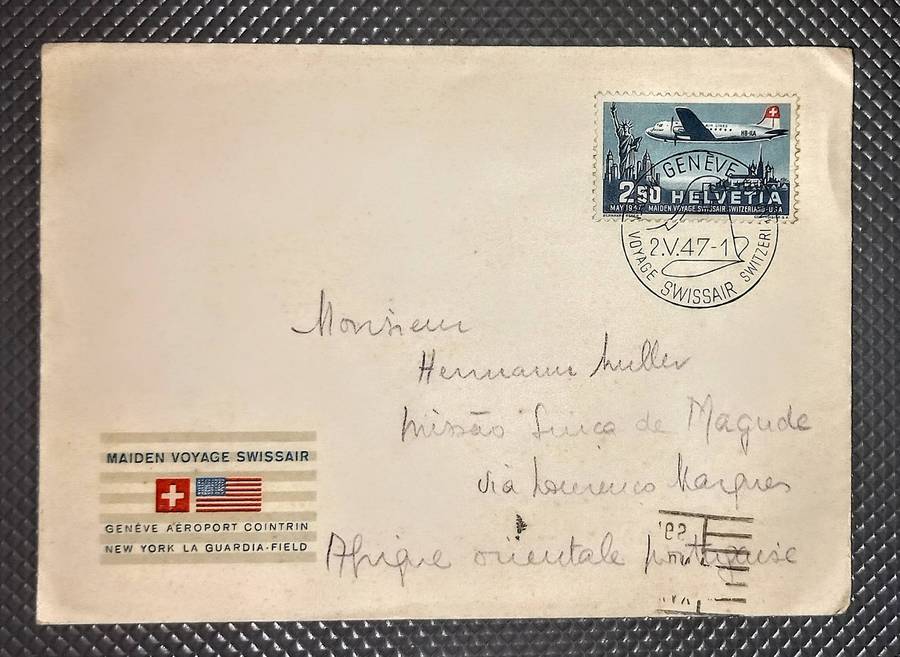 AIR LINES
HB-ILA
2.50 HELVETIA
MAY 1947 MAIDEN VOYAGE SWISSAIR SWITZERLAND-USA
GENÈVE
2.V.47-1
VOYAGE SWISSAIR SWITZERL
Monsieur
Hermann Muller
Missão Suiça de Magude
via Lourenco Marques
Afrique orientale portugaise
MAIDEN VOYAGE SWISSAIR
GENÈVE AÉROPORT COINTRIN
NEW YORK LA GUARDIA-FIELD